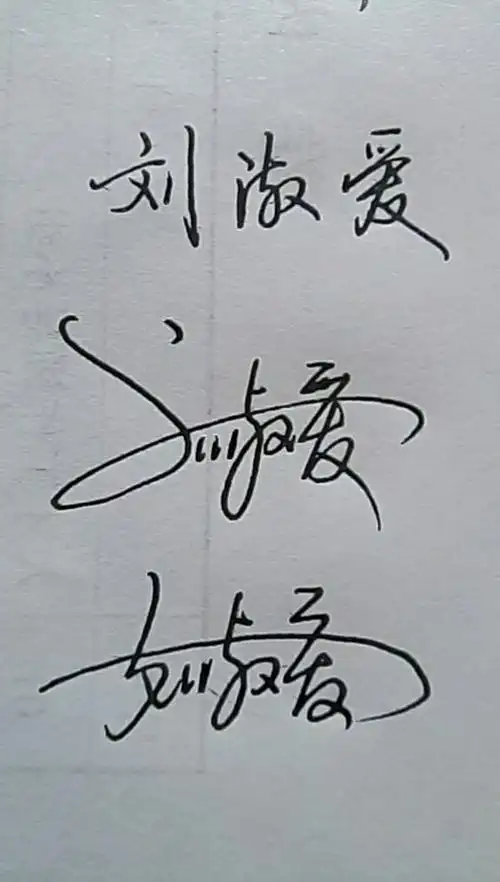 刘淑爱
刘淑爱
刘淑爱